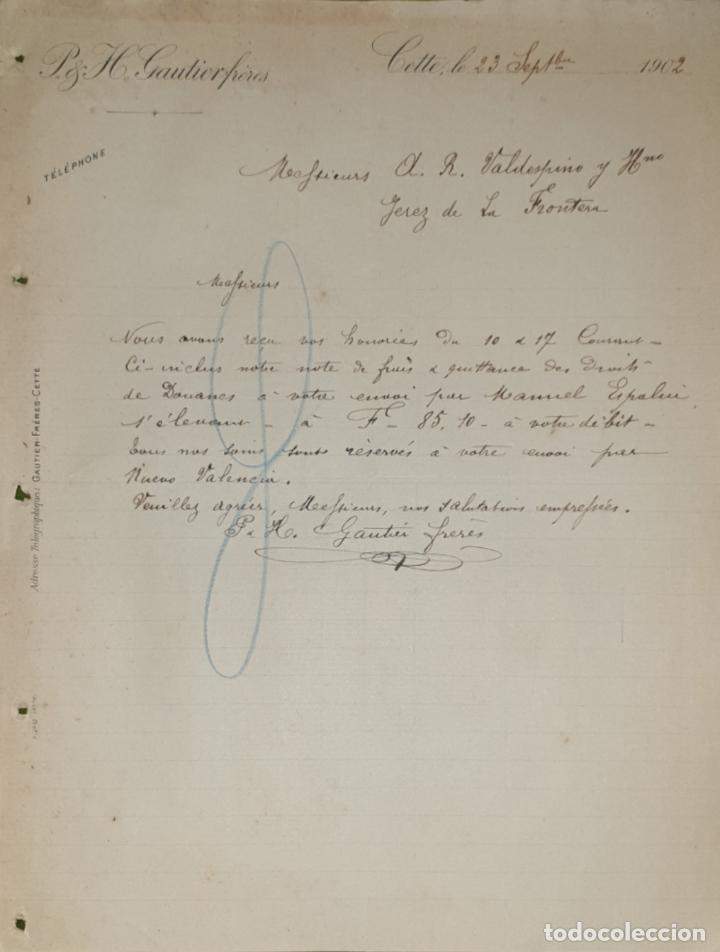 P. & H. Gautier frères
Cette, le 23 Septbre 1902
TÉLÉPHONE
Messieurs A. R. Valdespino y Hno
Jerez de La Frontera
Messieurs
Nous avons reçu vos honorées du 10 & 17 Courant -
Ci-inclus notre note de frais & quittance des Droits
de Douanes à votre envoi par Manuel Espaliu
s'élevant - à F. 85,10 - à votre débit -
tous nos soins sont réservés à votre envoi par
Nuevo Valencia.
Veuillez agréer, Messieurs, nos salutations empressées.
P & H. Gautier frères
Adresse Télégraphique: GAUTIER-FRÈRES-CETTE
todocoleccion
todocoleccion.net